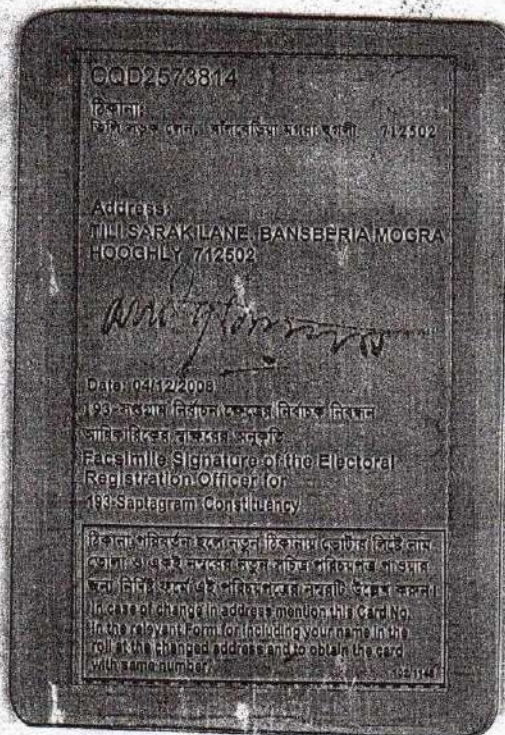 OQD2573814
ঠিকানা:
তিলি সড়ক লেন, বাঁশবেড়িয়া মগরা হুগলী 712502
Address:
TILI SARAK LANE, BANSBERIA MOGRA
HOOGHLY 712502
Date: 04/12/2008
193-সপ্তগ্রাম নির্বাচন ক্ষেত্রের নির্বাচক নিবন্ধন
আধিকারিকের স্বাক্ষরের অনুকৃতি
Facsimile Signature of the Electoral
Registration Officer for
193-Saptagram Constituency
ঠিকানা পরিবর্তন হলে নতুন ঠিকানায় ভোটার লিস্টে নাম
তোলা ও একই নম্বরের নতুন সচিত্র পরিচয়পত্র পাওয়ার
জন্য নির্দিষ্ট ফর্মে এই পরিচয়পত্রের নম্বরটি উল্লেখ করুন।
In case of change in address mention this Card No.
in the relevant Form for including your name in the
roll at the changed address and to obtain the card
with same number.